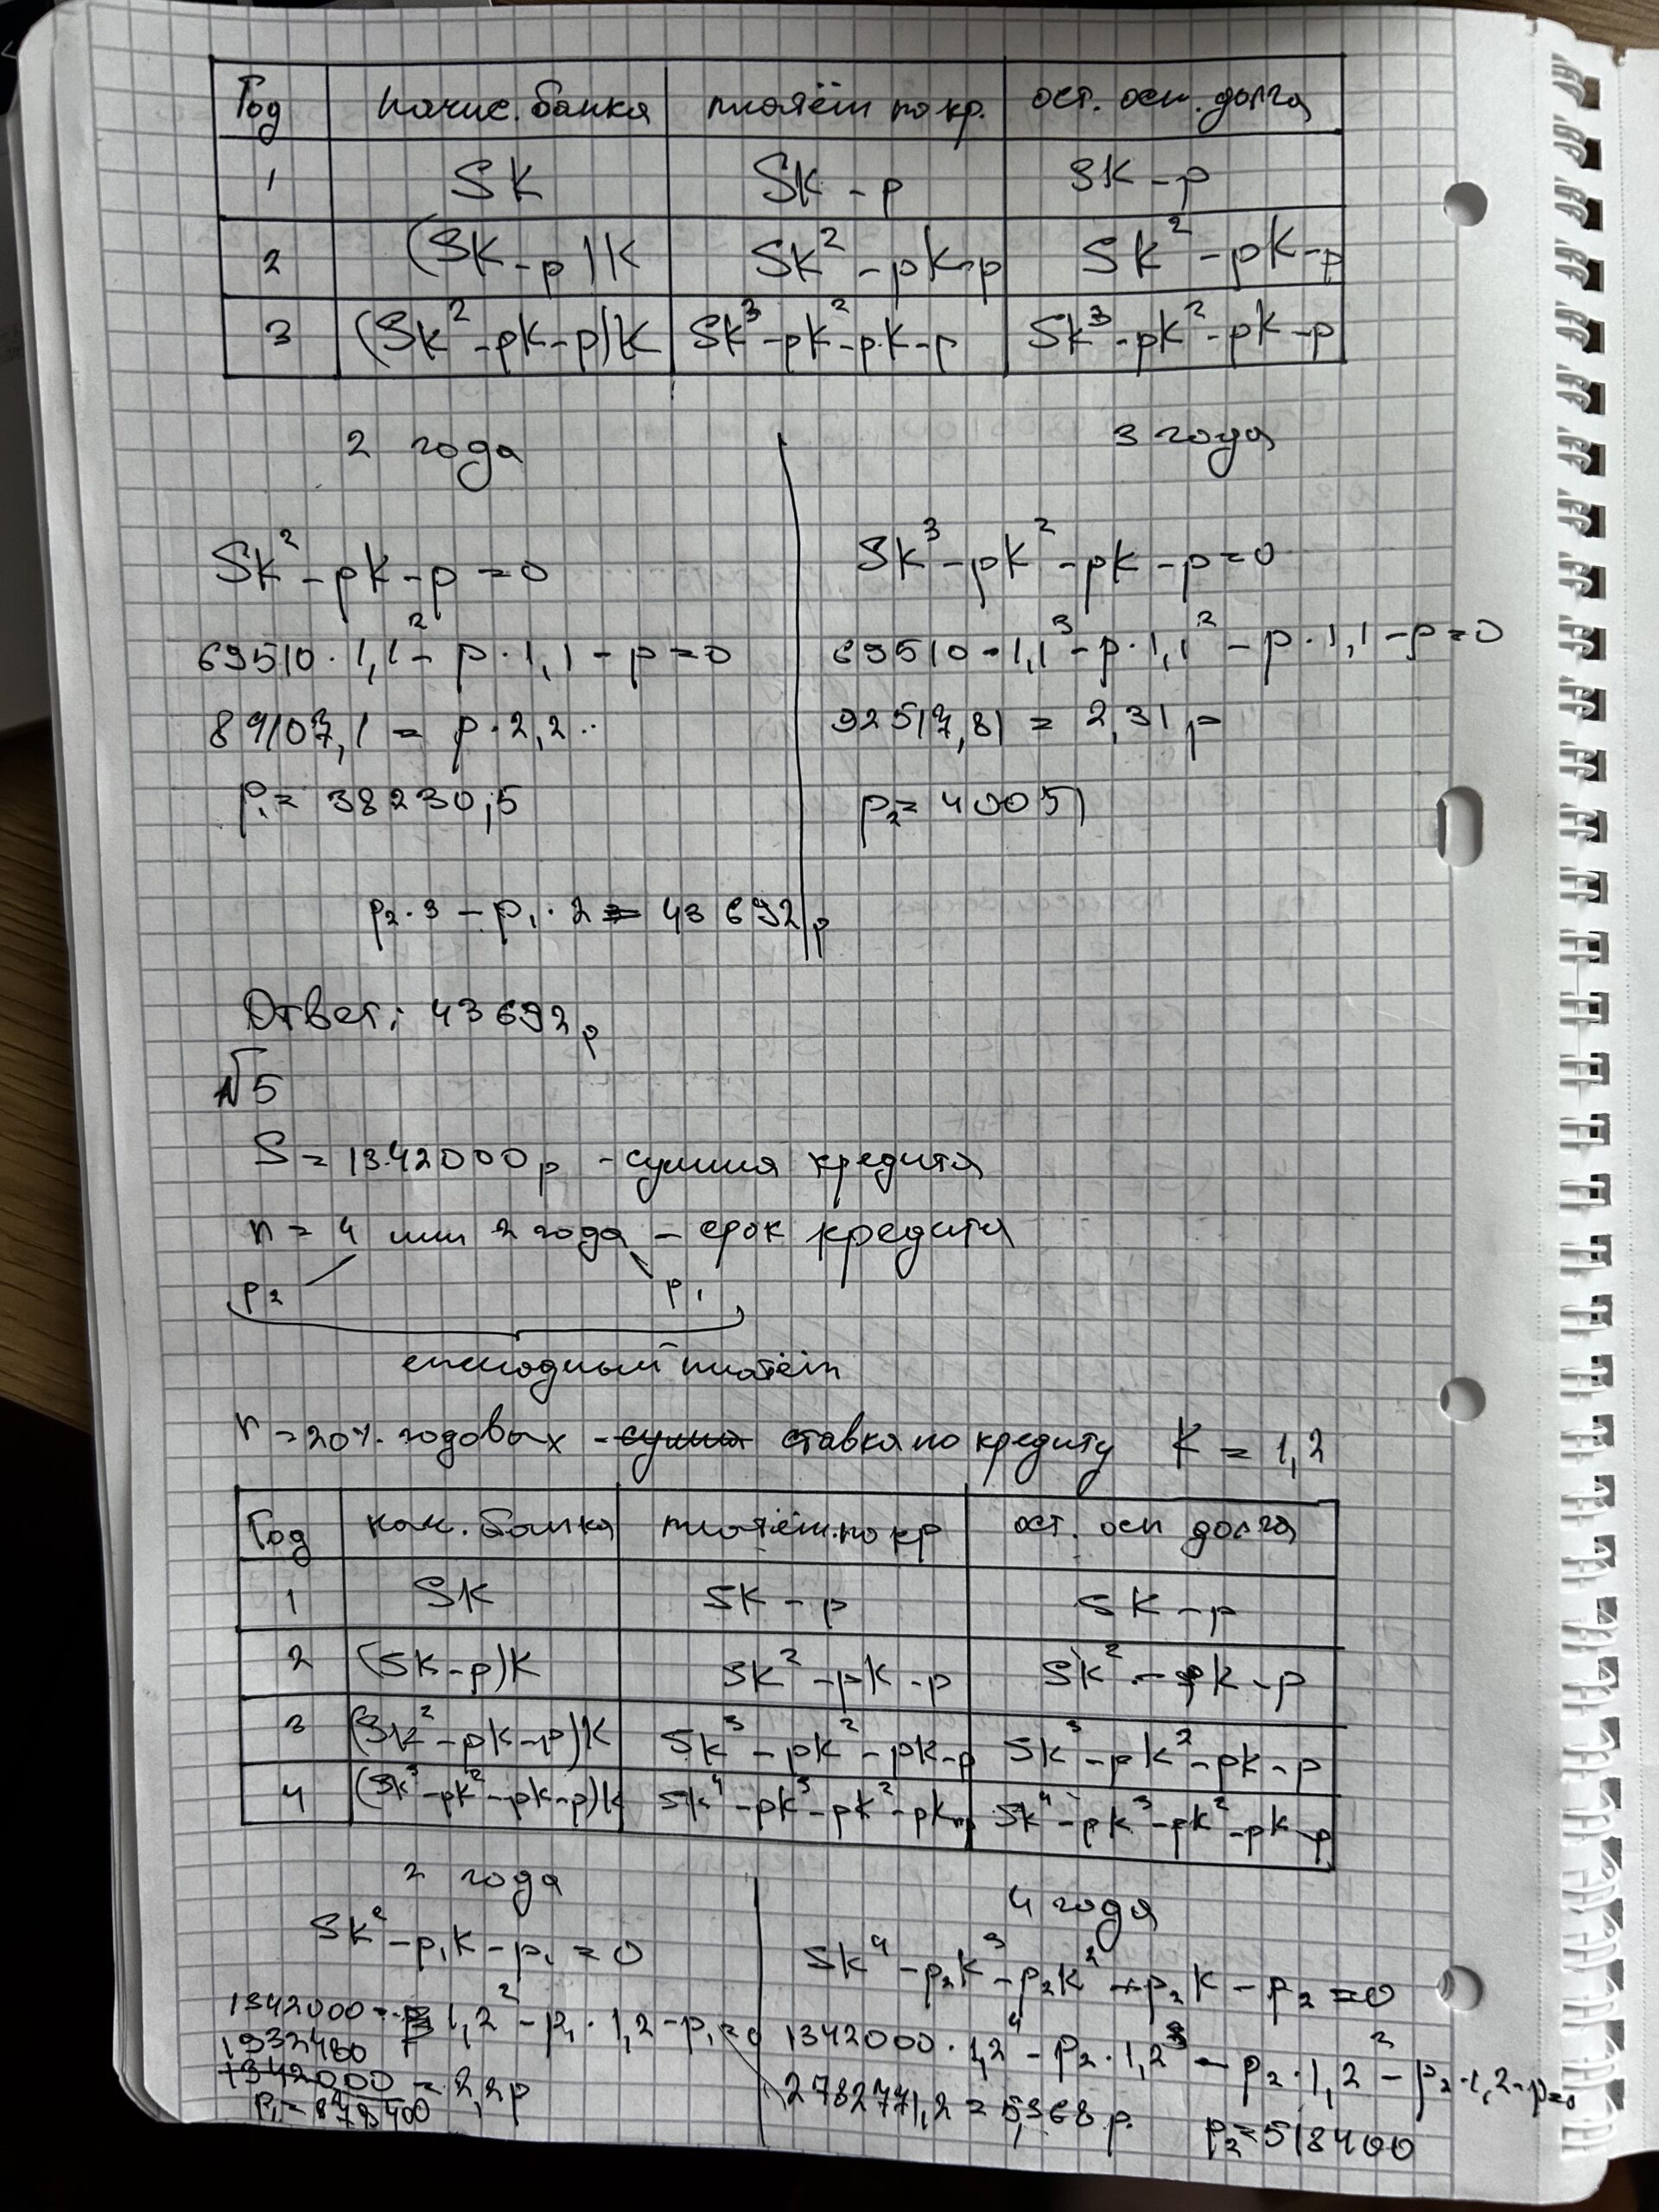 Год начис. банка платёж по кр. ост. осн. долга
1 Sk Sk - p Sk - p
2 (Sk - p)k Sk² - pk - p Sk² - pk - p
3 (Sk² - pk - p)k Sk³ - pk² - p·k - p Sk³ - pk² - pk - p
2 года
Sk² - pk - p = 0
69510 · 1,1² - p · 1,1 - p = 0
84107,1 = p · 2,2..
p₁ = 38230,5
3 года
Sk³ - pk² - pk - p = 0
69510 · 1,1³ - p · 1,1² - p · 1,1 - p = 0
92517,81 = 2,31 p
p₂ = 40051
p₂ · 3 - p₁ · 2 = 43 692 р
Ответ: 43 692 р
№5
S = 1342000 р - сумма кредита
n = 4 или 2 года - срок кредита
p₂ p₁
ежегодный платёж
r = 20% годовых - ставка по кредиту k = 1,2
Год нач. банка платёж. по кр ост. осн долга
1 Sk Sk - p Sk - p
2 (Sk - p)k Sk² - pk - p Sk² - pk - p
3 (Sk² - pk - p)k Sk³ - pk² - pk - p Sk³ - pk² - pk - p
4 (Sk³ - pk² - pk - p)k Sk⁴ - pk³ - pk² - pk - p Sk⁴ - pk³ - pk² - pk - p
2 года
Sk² - p₁k - p₁ = 0
1342000 · 1,2² - p₁ · 1,2 - p₁ = 0
1932480
1342000 = 2,2p
p₁ = 878400
4 года
Sk⁴ - p₂k³ - p₂k² - p₂k - p₂ = 0
1342000 · 1,2⁴ - p₂ · 1,2³ - p₂ · 1,2² - p₂ · 1,2 - p = 0
2782771,2 = 5,368 p.
p₂ = 518400